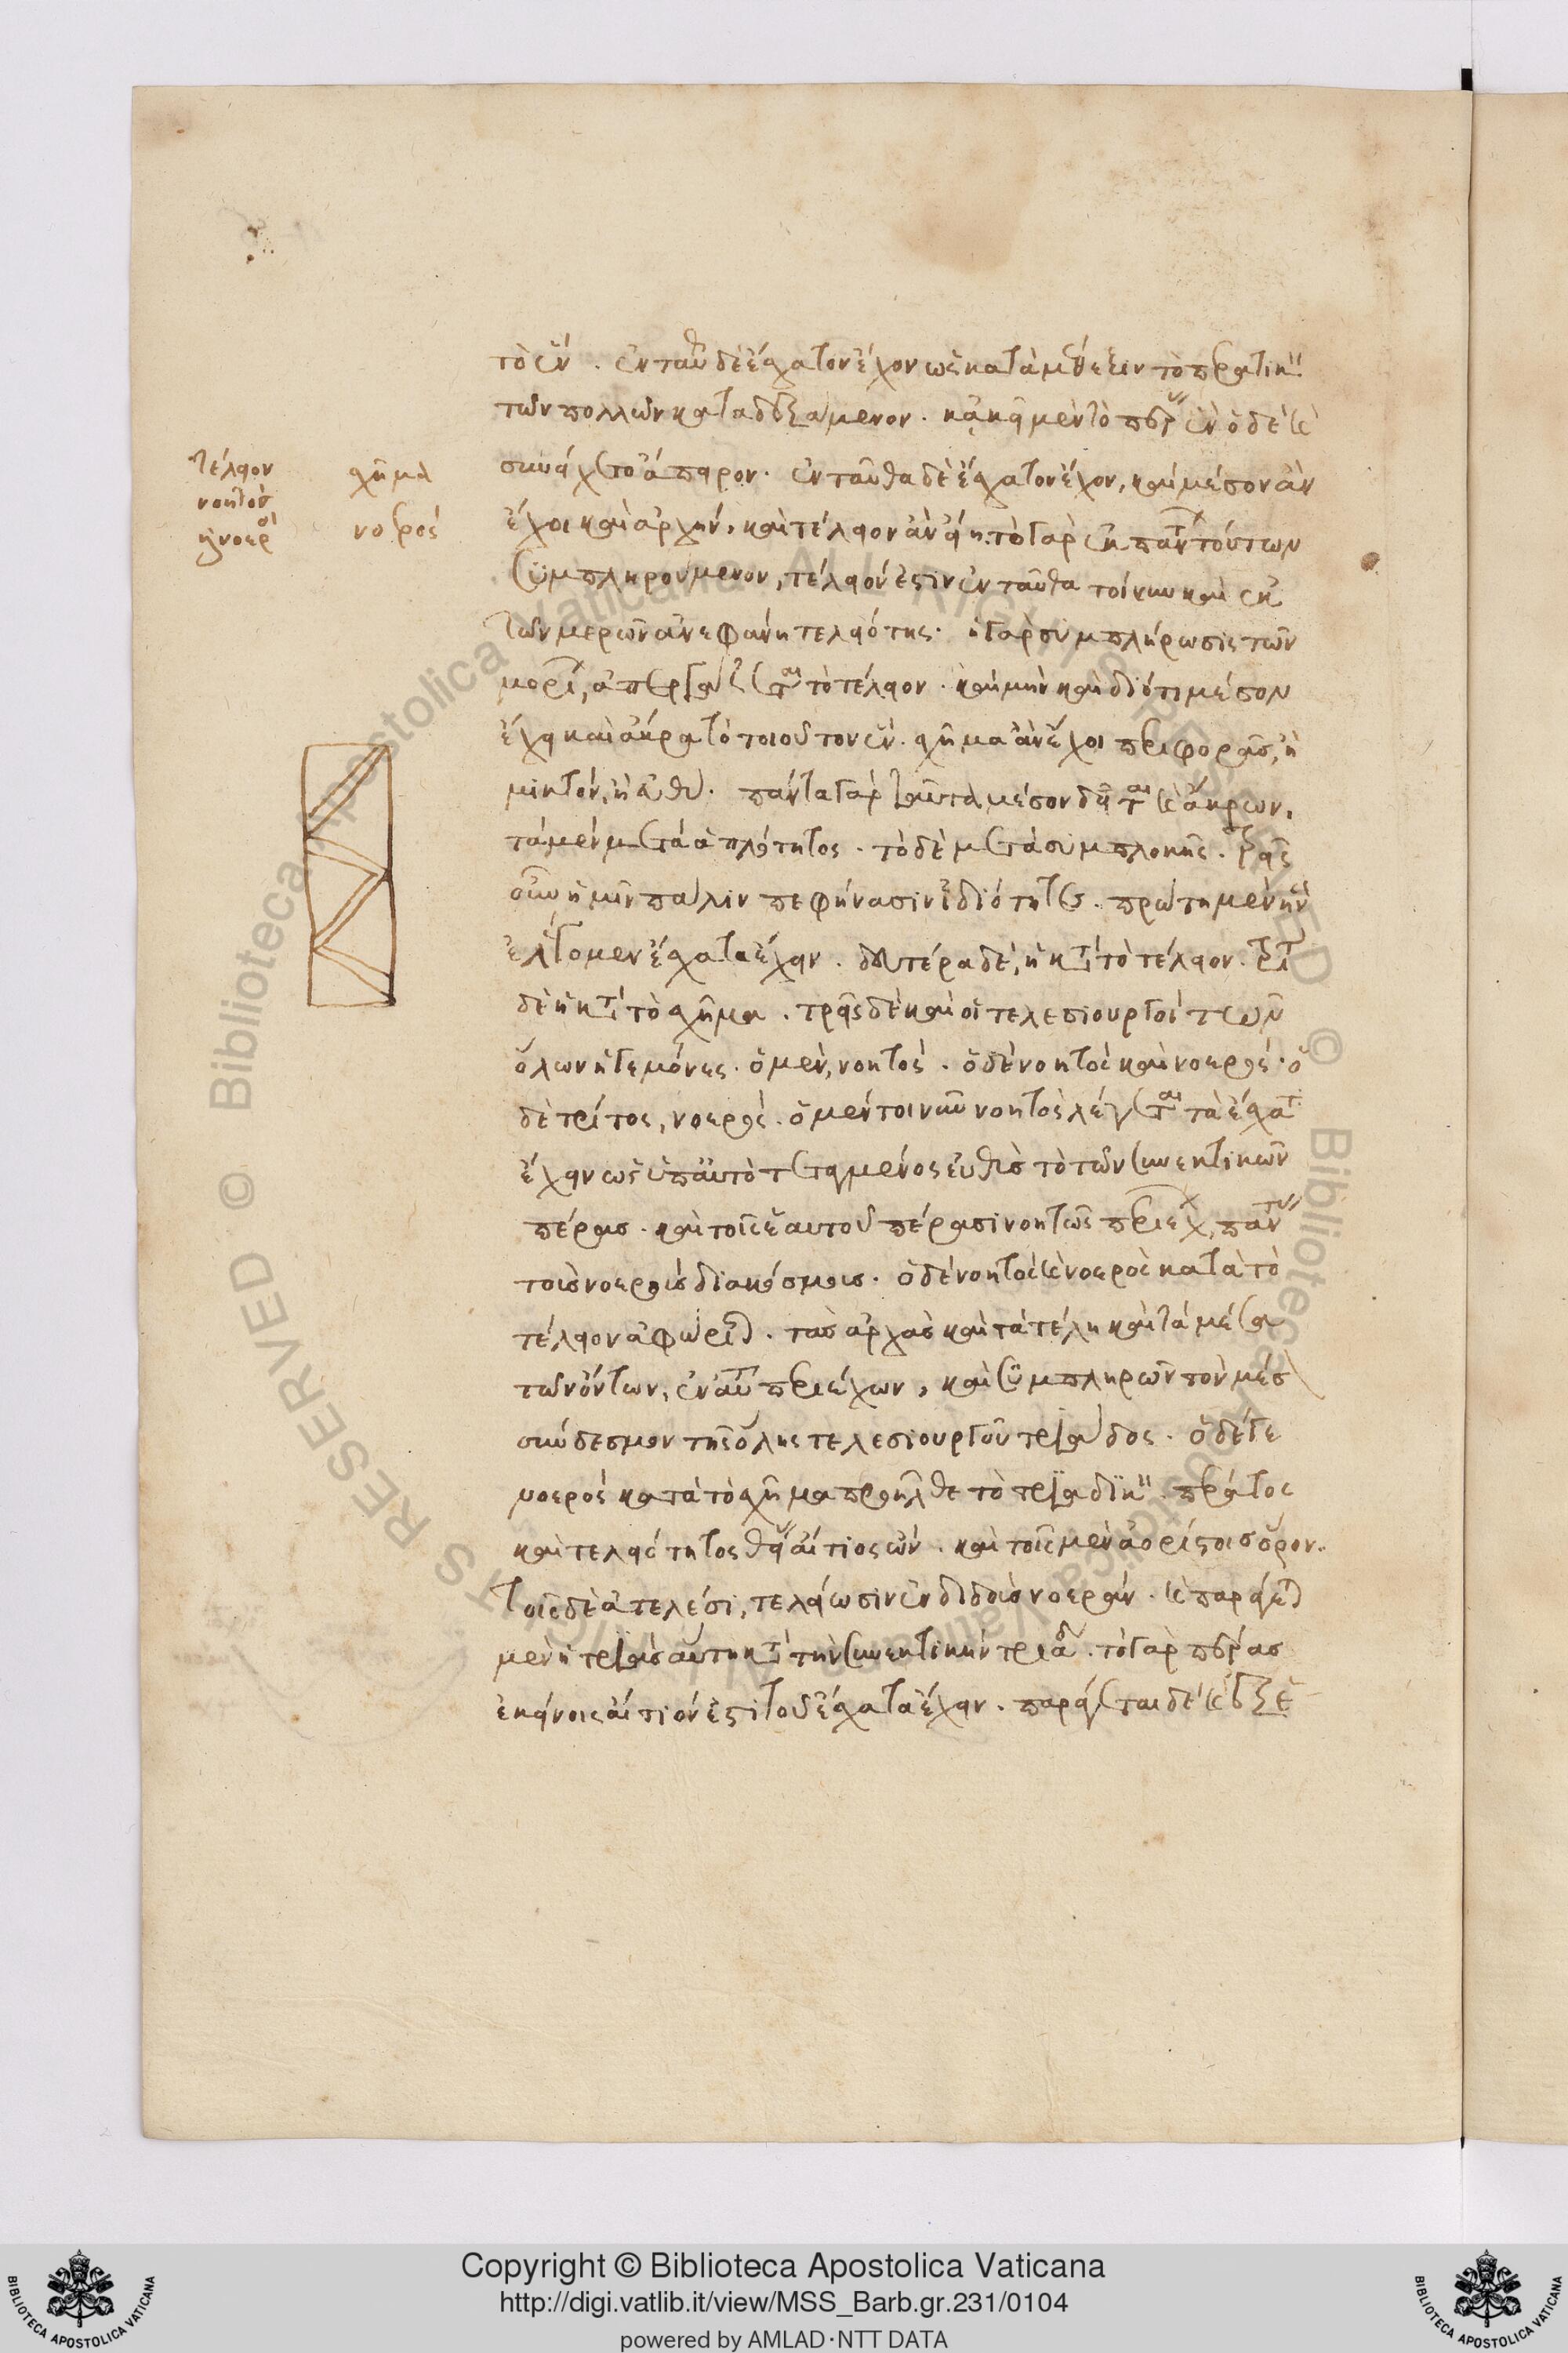 τὸ ἕν. ἐνταῦθα δὲ ἔσχατον ἔχον ὡς κατὰ μέθεξιν τὸ περατικὸν
τῶν πολλῶν καταδεξάμενον. κἀκεῖ μὲν τὸ πέρας ἓν ὁ δὲ καὶ
συνάγει τὸ ἄπειρον. ἐνταῦθα δὲ ἔσχατον ἔχον, καὶ μέσον ἂν
ἔχοι καὶ ἀρχήν, καὶ τέλειον ἂν εἴη. τὸ γὰρ ἐκ πάντων τούτων
συμπληρούμενον, τέλειόν ἐστιν ἐνταῦθα τοίνυν καὶ ἐκ
τῶν μερῶν ἀνεφάνη τελειότης. ἡ γὰρ συμπλήρωσις τῶν
μορίων, ἀπεργάζεται τὸ τέλειον. καὶ μὴν καὶ διότι μέσον
ἔχει καὶ ἄκρα τὸ τοιοῦτον ἕν. σχῆμα ἂν ἔχοι περιφοράς, ἢ
μικτόν, ἢ εὐθύ. πάντα γὰρ ταῦτα μέσον δεῖται καὶ ἄκρων,
τὰ μὲν μετὰ ἁπλότητος. τὸ δὲ μετὰ συμπλοκῆς. τρεῖς
οὖν ἡμῖν πάλιν πεφήνασιν ἰδιότητες. πρώτη μὲν ἣν
ἐλέγομεν ἔσχατα ἔχειν. δευτέρα δὲ, ἡ κατὰ τὸ τέλειον. τρίτη
δὲ ἡ κατὰ τὸ σχῆμα. τρεῖς δὲ καὶ οἱ τελεσιουργοὶ τῶν
ὅλων ἡγεμόνες. ὁ μὲν, νοητός. ὁ δὲ νοητὸς καὶ νοερός. ὁ
δὲ τρίτος, νοερός. ὁ μὲν τοίνυν νοητὸς λέγεται τὰ ἔσχατα
ἔχειν ὡς ὑπ' αὐτὸ τεταγμένος εὐθὺς τὸ τῶν συνεκτικῶν
πέρας. καὶ τοῖς ἑαυτοῦ πέρασι νοητῶς περιέχων, πάντας
τοὺς νοεροὺς διακόσμους. ὁ δὲ νοητὸς καὶ νοερὸς κατὰ τὸ
τέλειον ἀφώρισται. τὰς ἀρχὰς καὶ τὰ τέλη καὶ τὰ μέσα
τῶν ὄντων, ἐν αὑτῷ περιέχων, καὶ συμπληρῶν τὸν μέσον
σύνδεσμον τῆς ὅλης τελεσιουργοῦ τριάδος. ὁ δέ γε
νοερὸς κατὰ τὸ σχῆμα προῆλθε τὸ τριαδικὸν. πέρατος
καὶ τελειότητος θείας αἴτιος ὤν. καὶ τοῖς μὲν ἀορίστοις ὅρον.
τοῖς δὲ ἀτελέσι, τελείωσιν ἐνδιδοὺς νοεράν. καὶ παράγεται
μὲν ἡ τριὰς αὕτη κατὰ τὴν συνεκτικὴν τριάδα. τὸ γὰρ πέρας
ἐκείνοις αἴτιόν ἐστι τοῦ ἔσχατα ἔχειν. παράγεται δὲ καὶ ἐξ ἑ
τέλειον
νοητὸς
καὶ νοερὸς
σχῆμα
νοερός
Copyright © Biblioteca Apostolica Vaticana
http://digi.vatlib.it/view/MSS_Barb.gr.231/0104
powered by AMLAD·NTT DATA